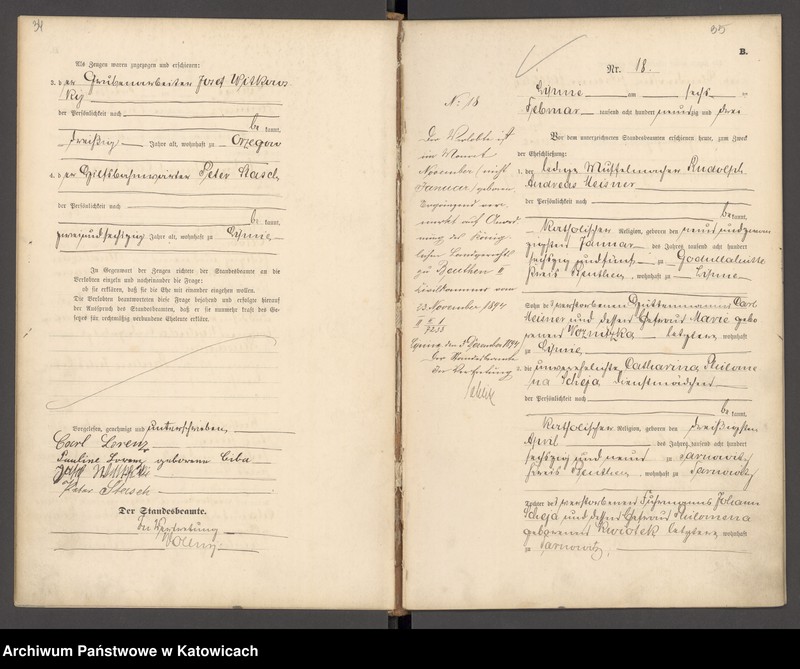 34
Als Zeugen waren zugezogen und erschienen:
3. der Grubenarbeiter Josef Witkows
ki
der Persönlichkeit nach
be kannt,
dreißig Jahre alt, wohnhaft zu Orzegow
4. der Hilfsbahnwärter Peter Stasch
der Persönlichkeit nach
be kannt,
zweiundsechzig Jahre alt, wohnhaft zu Lipine
In Gegenwart der Zeugen richtete der Standesbeamte an die
Verlobten einzeln und nacheinander die Frage:
ob sie erklären, daß sie die Ehe mit einander eingehen wollen.
Die Verlobten beantworteten diese Frage bejahend und erfolgte hierauf
der Ausspruch des Standesbeamten, daß er sie nunmehr kraft des Ge-
setzes für rechtmäßig verbundene Eheleute erkläre.
Vorgelesen, genehmigt und unterschrieben
Carl Lorenz
Pauline Lorenz geborene Ciba
Peter Stasch
Der Standesbeamte.
In Vertretung
35
B.
Nr. 18.
Lipine am sechs ten
Februar tausend acht hundert neunzig und drei
Vor dem unterzeichneten Standesbeamten erschienen heute, zum Zweck
der Eheschließung:
1. der ledige Muffelmacher Rudolph
Andreas Meisner
der Persönlichkeit nach
be kannt,
katholischer Religion, geboren den neun und zwan
zigsten Januar des Jahres tausend acht hundert
sechszig und fünf zu Godullahütte
Kreis Beuthen, wohnhaft zu Lipine
Sohn des verstorbenen Hüttenmanns Carl
Meisner und dessen Ehefrau Marie gebo
renen Woznitzka letztere wohnhaft
zu Lipine
2. die unverehelichte Catharina, Philome
na Scheja, Dienstmädchen
der Persönlichkeit nach
be kannt,
katholischer Religion, geboren den dreißigsten
April des Jahres tausend acht hundert
sechszig und neun zu Tarnowitz
Kreis Beuthen, wohnhaft zu Tarnowitz
Tochter des verstorbenen Fuhrmanns Johann
Scheja und dessen Ehefrau Philomena
geborenen Kwiotek letztere wohnhaft
zu Tarnowitz,
No 18
Der Verlobte ist
im Monat
November (nicht
Januar) geboren
Ergänzend ver-
merkt auf Anord
nung des König
lichen Landgerichts
zu Beuthen
Zivilkammer vom
23 November 1894
Lipine, den Dezember 1894
Der Standesbeamte
In Vertretung
Archiwum Państwowe w Katowicach